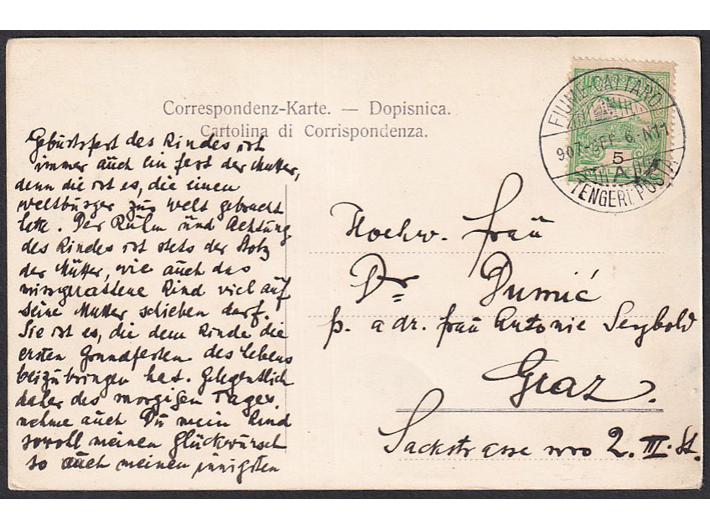 Correspondenz-Karte. — Dopisnica.
Cartolina di Corrispondenza.
FIUME-CATTARO
907 SEP. 6. N11
5
A
TENGERI POSTA
Geburtsfest des Kindes ist
immer auch ein fest der Mutter,
denn die ist es, die einen
weltbürger zur welt gebracht
. Der Ruhm und Achtung
des Kindes ist stets der Stolz
der Mutter, wie auch das
Kind viel auf
seine Mutter schieben darf.
Sie ist es, die dem Kinde die
ersten Grundfesten des Lebens
beizubringen hat. Gelegentlich
daher des morgigen Tages
nehme auch Du mein Kind
sowoll meinen glückwunsch
so auch meinen innigsten
Hochw. Frau
Dr Dumić
p. adr. frau Antonie Seybold
Graz.
Sackstrasse nro 2. III. St.